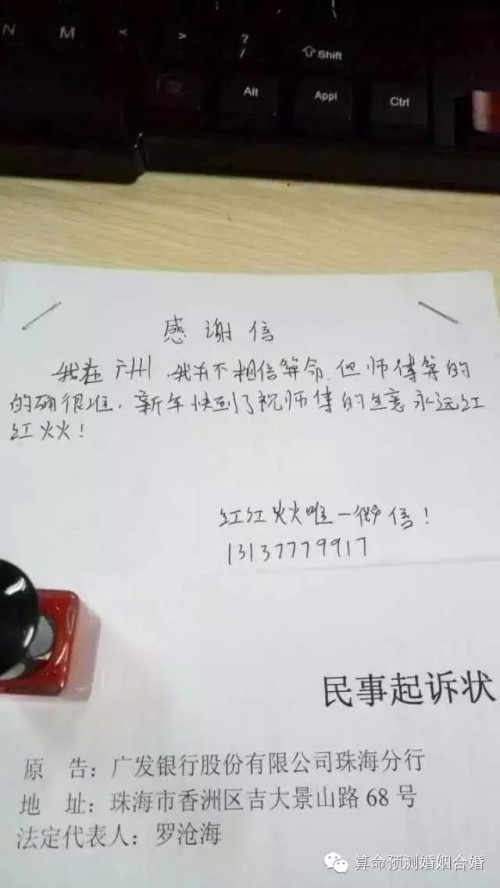 N M < > ? / Shift
Alt Appl Ctrl
感谢信
我在广州 我本不相信算命，但师傅算的
的确很准，新年快到了祝师傅的生意永远红
红火火！
红红火火唯一微信！
13137779917
民事起诉状
原 告：广发银行股份有限公司珠海分行
地 址：珠海市香洲区吉大景山路 68 号
法定代表人：罗沧海
算命预测婚姻合婚